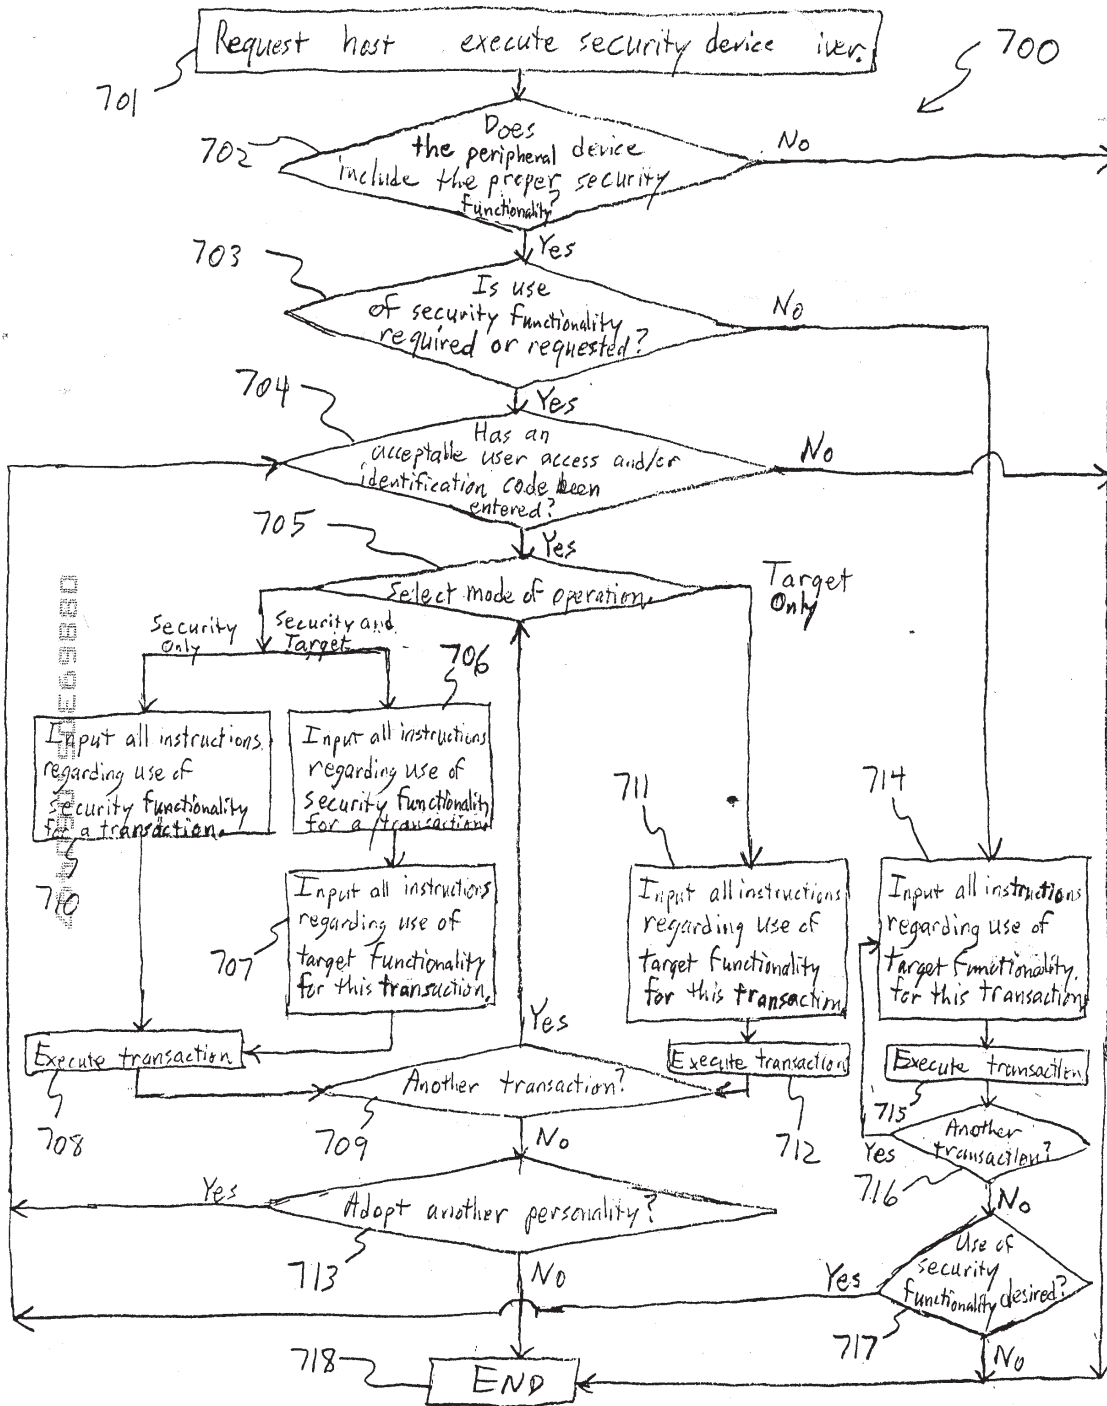 Request host execute security device iver.
700
701
Does
the peripheral device
include the proper security
functionality?
702
No
Yes
703
Is use
of security functionality
required or requested?
No
Yes
704
Has an
acceptable user access and/or
identification code been
entered?
No
Yes
705
Select mode of operation.
Target
Only
Security
Only
Security and
Target
706
Input all instructions
regarding use of
security functionality
for a transaction.
710
Input all instructions
regarding use of
security functionality
for a transaction.
707
Input all instructions
regarding use of
target functionality
for this transaction.
711
Input all instructions
regarding use of
target functionality
for this transaction.
714
Input all instructions
regarding use of
target functionality.
for this transaction.
Execute transaction
708
Yes
Another transaction?
709
No
Execute transaction
712
Execute transaction
715
Another
transaction?
Yes
716
No
Yes
Adopt another personality?
713
No
Use of
security
functionality desired?
Yes
717
No
718
END